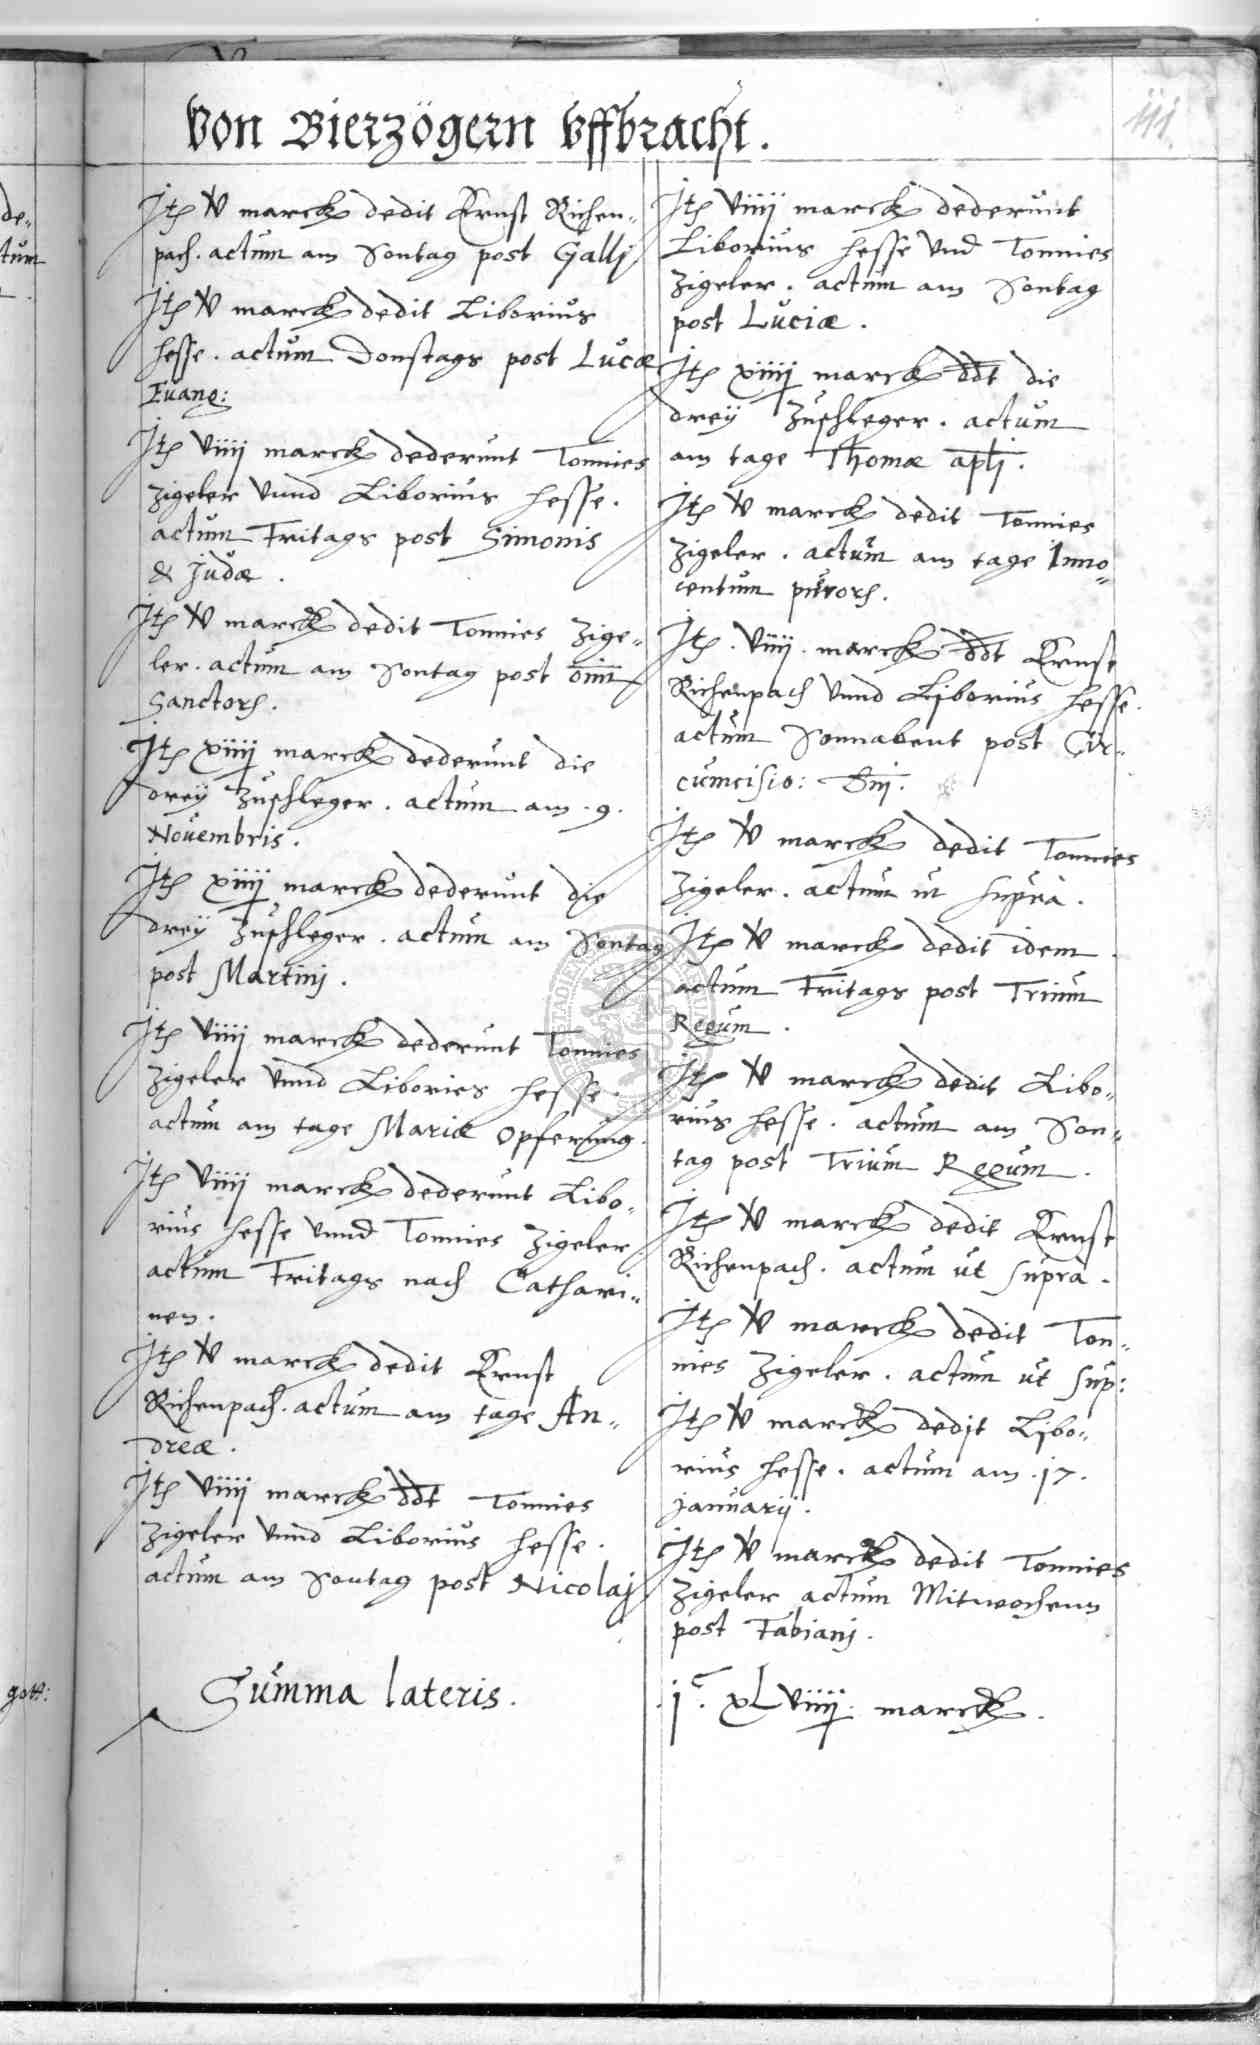 Von Bierzögern vffbracht.
iij
Itꝫ v marck dedit Ernst Richen-
pach. actum am Sontag post Gallj
Itꝫ v marck dedit Liborius
Hesse. actum Donstags post Lucæ
Euang:
Itꝫ viiij marck dederunt Tonnies
Zigeler vnnd Liborius Hesse.
actum Fritags post Simonis
& Judæ.
Itꝫ v marck dedit Tonnies Zige-
ler. actum am Sontag post om̄
Sanctorꝫ.
Itꝫ xiiij marck dederunt die
drey Zuschleger. actum am .9.
Nouembris.
Itꝫ xiiij marck dederunt die
drey Zuschleger. actum am Sontag
post Martinj.
Itꝫ viiij marck dederunt Tonnies
Zigeler vnnd Libories Hesse.
actum am tage Mariæ Opferung.
Itꝫ viiij marck dederunt Libo-
rius Hesse vnnd Tonnies Zigeler
actum Fritags nach Cathari-
nen.
Itꝫ v marck dedit Ernst
Richenpach. actum am tage An-
dreæ.
Itꝫ viiij marck ddt Tonnies
Zigeler vnnd Liborius Hesse.
actum am Sontag post Nicolaj
Itꝫ viiij marck dederunt
Liborius Hesse vnd Tonnies
Zigeler. actum am Sontag
post Luciæ.
Itꝫ xiiij marck ddt die
drey Zuschleger. actum
am tage Thomæ apli.
Itꝫ v marck dedit Tonnies
Zigeler. actum am tage Inno-
centum puerorꝫ.
Itꝫ .viiij. marck ddt Ernst
Richenpach vnnd Liborius Hesse.
actum Sonnabent post Cir-
cumcisio: Dnj.
Itꝫ v marck dedit Tonnies
Zigeler. actum ut supra.
Itꝫ v marck dedit idem.
actum Fritags post Trium
Regum.
Itꝫ v marck dedit Libo-
rius Hesse. actum am Son-
tag post Trium Regum.
Itꝫ v marck dedit Ernst
Richenpach. actum ut supra.
Itꝫ v marck dedit Ton-
nies Zigeler. actum ut sup:
Itꝫ v marck dedit Libo-
rius Hesse. actum am .17.
Januarij.
Itꝫ v marck dedit Tonnies
Zigeler actum Mitwochenn
post Fabianj.
Summa lateris. jᶜ. xLviiij. marck.